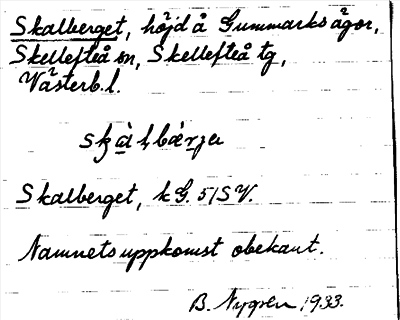 Skalberget, höjd å Gummarks ägor,
Skellefteå sn, Skellefteå tg,
Västerb. l.
Skalberget, k G. 51 SV.
Namnets uppkomst obekant.
B. Nygren 1933.